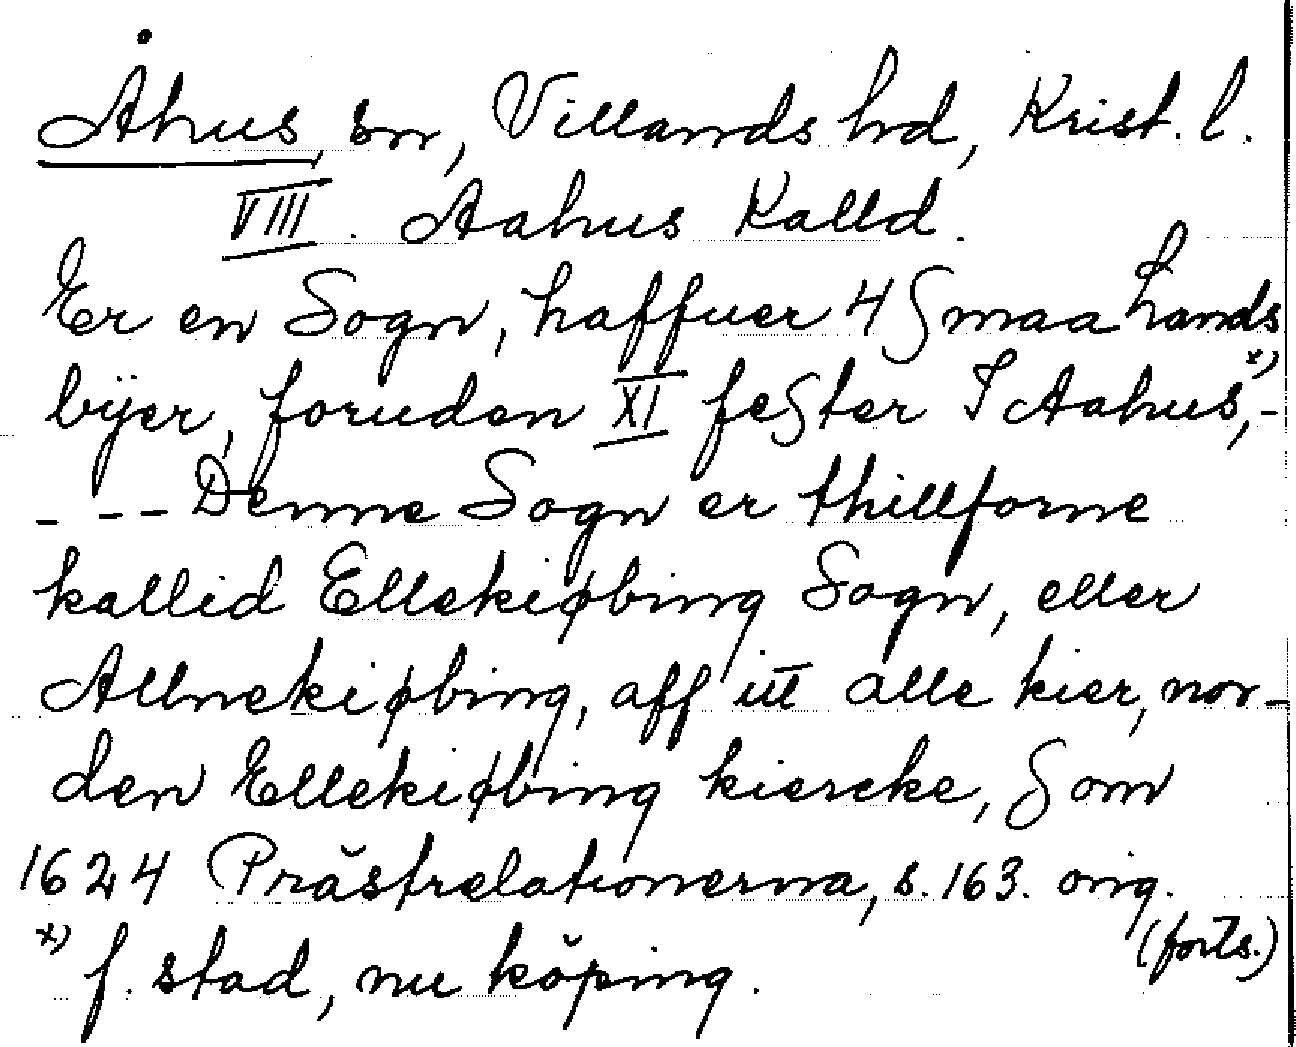 Åhus, sn, Villands hd, Krist. l.
VIII. Aahus Kalld.
Er en Sogn, haffuer 4 Smaa Lands
bÿer, foruden XI fester I Aahus,*) -
- -- Denne Sogn er thillforne
kallid Ellekiøbing Sogn, eller
Allnekiøbing, aff itt alle kier, nor-
den Ellekiøbing kiercke, Som
1624 Prästrelationerna, s. 163. orig.
(forts.)
*) f. stad, nu köping.